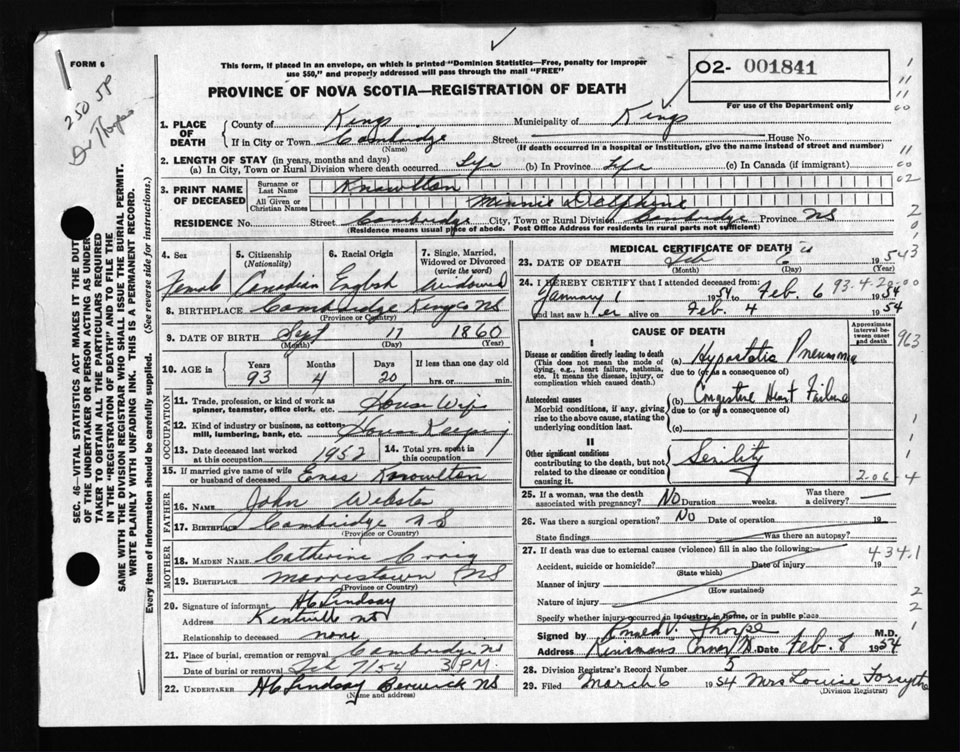 FORM 6
250 58
Dr Thorpe
This form, if placed in an envelope, on which is printed "Dominion Statistics—Free, penalty for improper
use $50," and properly addressed will pass through the mail "FREE"
02- 001841
For use of the Department only
PROVINCE OF NOVA SCOTIA—REGISTRATION OF DEATH
1. PLACE OF DEATH { County of Kings Municipality of Kings
If in City or Town Cambridge Street House No.
(Name) (If death occurred in a hospital or Institution, give the name instead of street and number)
2. LENGTH OF STAY (in years, months and days)
(a) In City, Town or Rural Division where death occurred Life (b) In Province Life (c) In Canada (if immigrant)
3. PRINT NAME OF DECEASED { Surname or Last Name Knowlton
All Given or Christian Names Minnie Dalphine
RESIDENCE No. Street Cambridge City, Town or Rural Division Cambridge Province NS
(Residence means usual place of abode. Post Office Address for residents in rural parts not sufficient)
4. Sex Female
5. Citizenship (Nationality) Canadian
6. Racial Origin English
7. Single, Married, Widowed or Divorced (write the word) Widowed
8. BIRTHPLACE Cambridge Kings Co NS
(Province or Country)
9. DATE OF BIRTH Sept 17 1860
(Month) (Day) (Year)
10. AGE in Years 93 Months 4 Days 20 If less than one day old hrs. or min.
OCCUPATION
11. Trade, profession, or kind of work as spinner, teamster, office clerk, etc. House Wife
12. Kind of industry or business, as cotton mill, lumbering, bank, etc. House Keeping
13. Date deceased last worked at this occupation 1952
14. Total yrs. spent in this occupation
15. If married give name of wife or husband of deceased Enos Knowlton
FATHER
16. NAME John Webster
17. BIRTHPLACE Cambridge NS
(Province or Country)
MOTHER
18. MAIDEN NAME Catherine Craig
19. BIRTHPLACE Morristown NS
(Province or Country)
20. Signature of informant H C Lindsay
Address Kentville NS
Relationship to deceased none
21. Place of burial, cremation or removal Cambridge NS
Date of burial or removal Feb 7/54 3 P.M.
22. UNDERTAKER H C Lindsay Berwick NS
(Name and address)
MEDICAL CERTIFICATE OF DEATH
23. DATE OF DEATH Feb 6 19 54
(Month) (Day) (Year)
24. I HEREBY CERTIFY that I attended deceased from:
January 1 1954 to Feb. 6 1954
and last saw her alive on Feb. 4 1954
CAUSE OF DEATH
Approximate interval between onset and death
I
Disease or condition directly leading to death
(This does not mean the mode of dying, e.g., heart failure, asthenia, etc. It means the disease, injury, or complication which caused death.)
(a) Hypostatic Pneumonia
due to (or as a consequence of)
Antecedent causes
Morbid conditions, if any, giving rise to the above cause, stating the underlying condition last.
(b) Congestive Heart Failure
due to (or as a consequence of)
(c)
II
Other significant conditions
contributing to the death, but not related to the disease or condition causing it
Senility
206
25. If a woman, was the death associated with pregnancy? No Duration weeks. Was there a delivery? —
26. Was there a surgical operation? No Date of operation 19
State findings Was there an autopsy?
27. If death was due to external causes (violence) fill in also the following:
Accident, suicide or homicide? Date of injury 19
(State which)
Manner of injury
(How sustained)
Nature of injury
Specify whether injury occurred in industry, in home, or in public place
4341
Signed by V. Thorpe M.D.
Address Kinsmans Corner NS Date Feb. 8 1954
28. Division Registrar's Record Number 5
29. Filed March 6 1954 Mrs Louise Forsythe
(Division Registrar)
SEC. 46—VITAL STATISTICS ACT MAKES IT THE DUTY
OF THE UNDERTAKER OR PERSON ACTING AS UNDER-
TAKER TO OBTAIN ALL THE PARTICULARS REQUIRED
IN THE "REGISTRATION OF DEATH" AND TO FILE THE
SAME WITH THE DIVISION REGISTRAR WHO SHALL ISSUE THE BURIAL PERMIT.
WRITE PLAINLY WITH UNFADING INK. THIS IS A PERMANENT RECORD.
Every item of information should be carefully supplied. (See reverse side for instructions.)